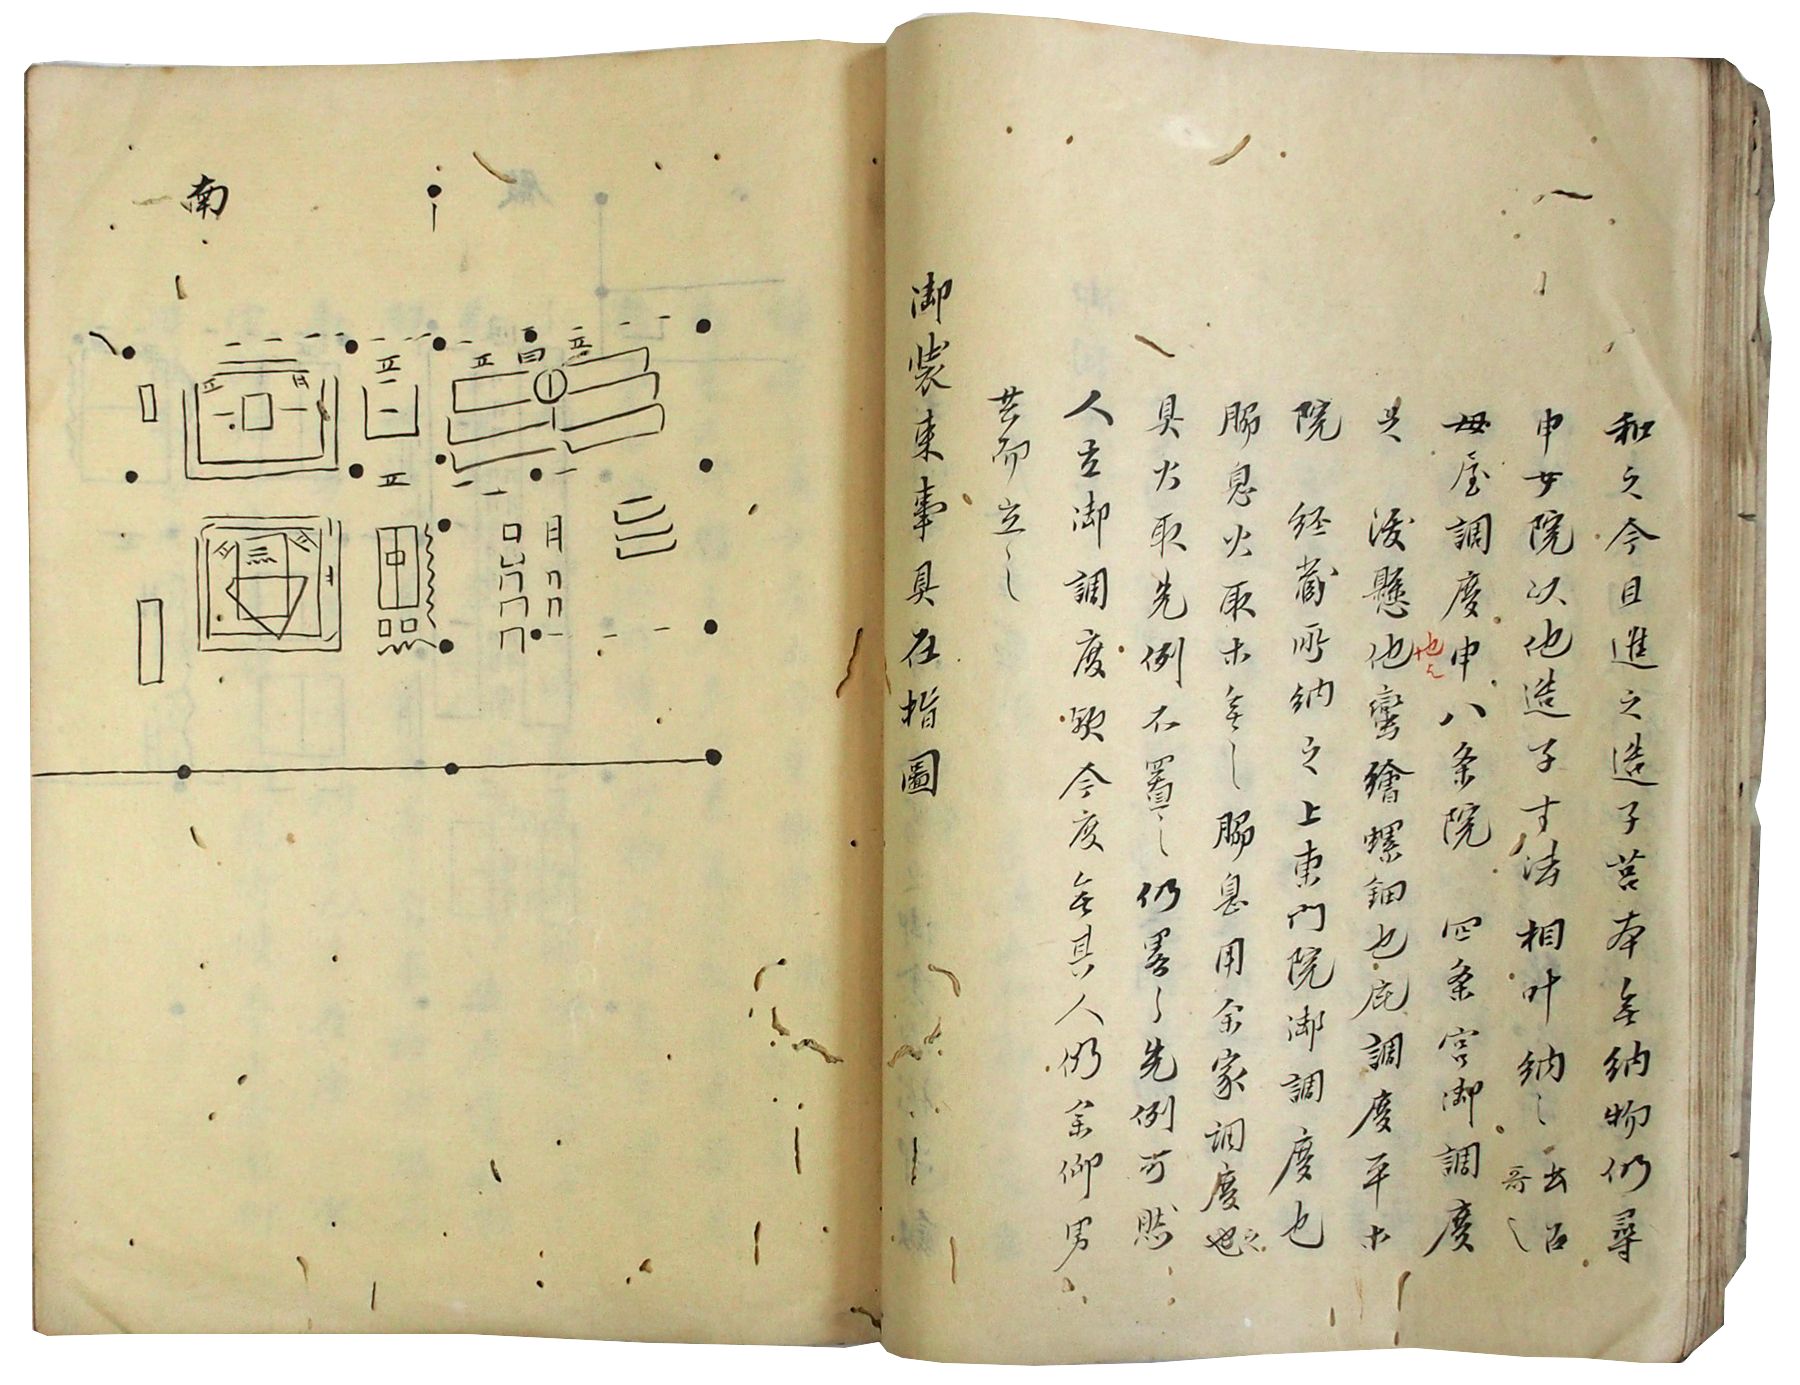 和之今日進之造子筥本無納物仍尋
申女院以他造子寸法相叶納之
母屋調度申八条院 四条宮御調度
也 懸他蛮繪螺鈿也庇調度平ホ
院 経蔵所納之上東門院御調度也
脇息火取ホ無之脇息用余家調度也
具火取先例不置之仍略之先例可然
人立御調度歟今度無其人仍余仰男
共而立之
御装束事具在指圖
南